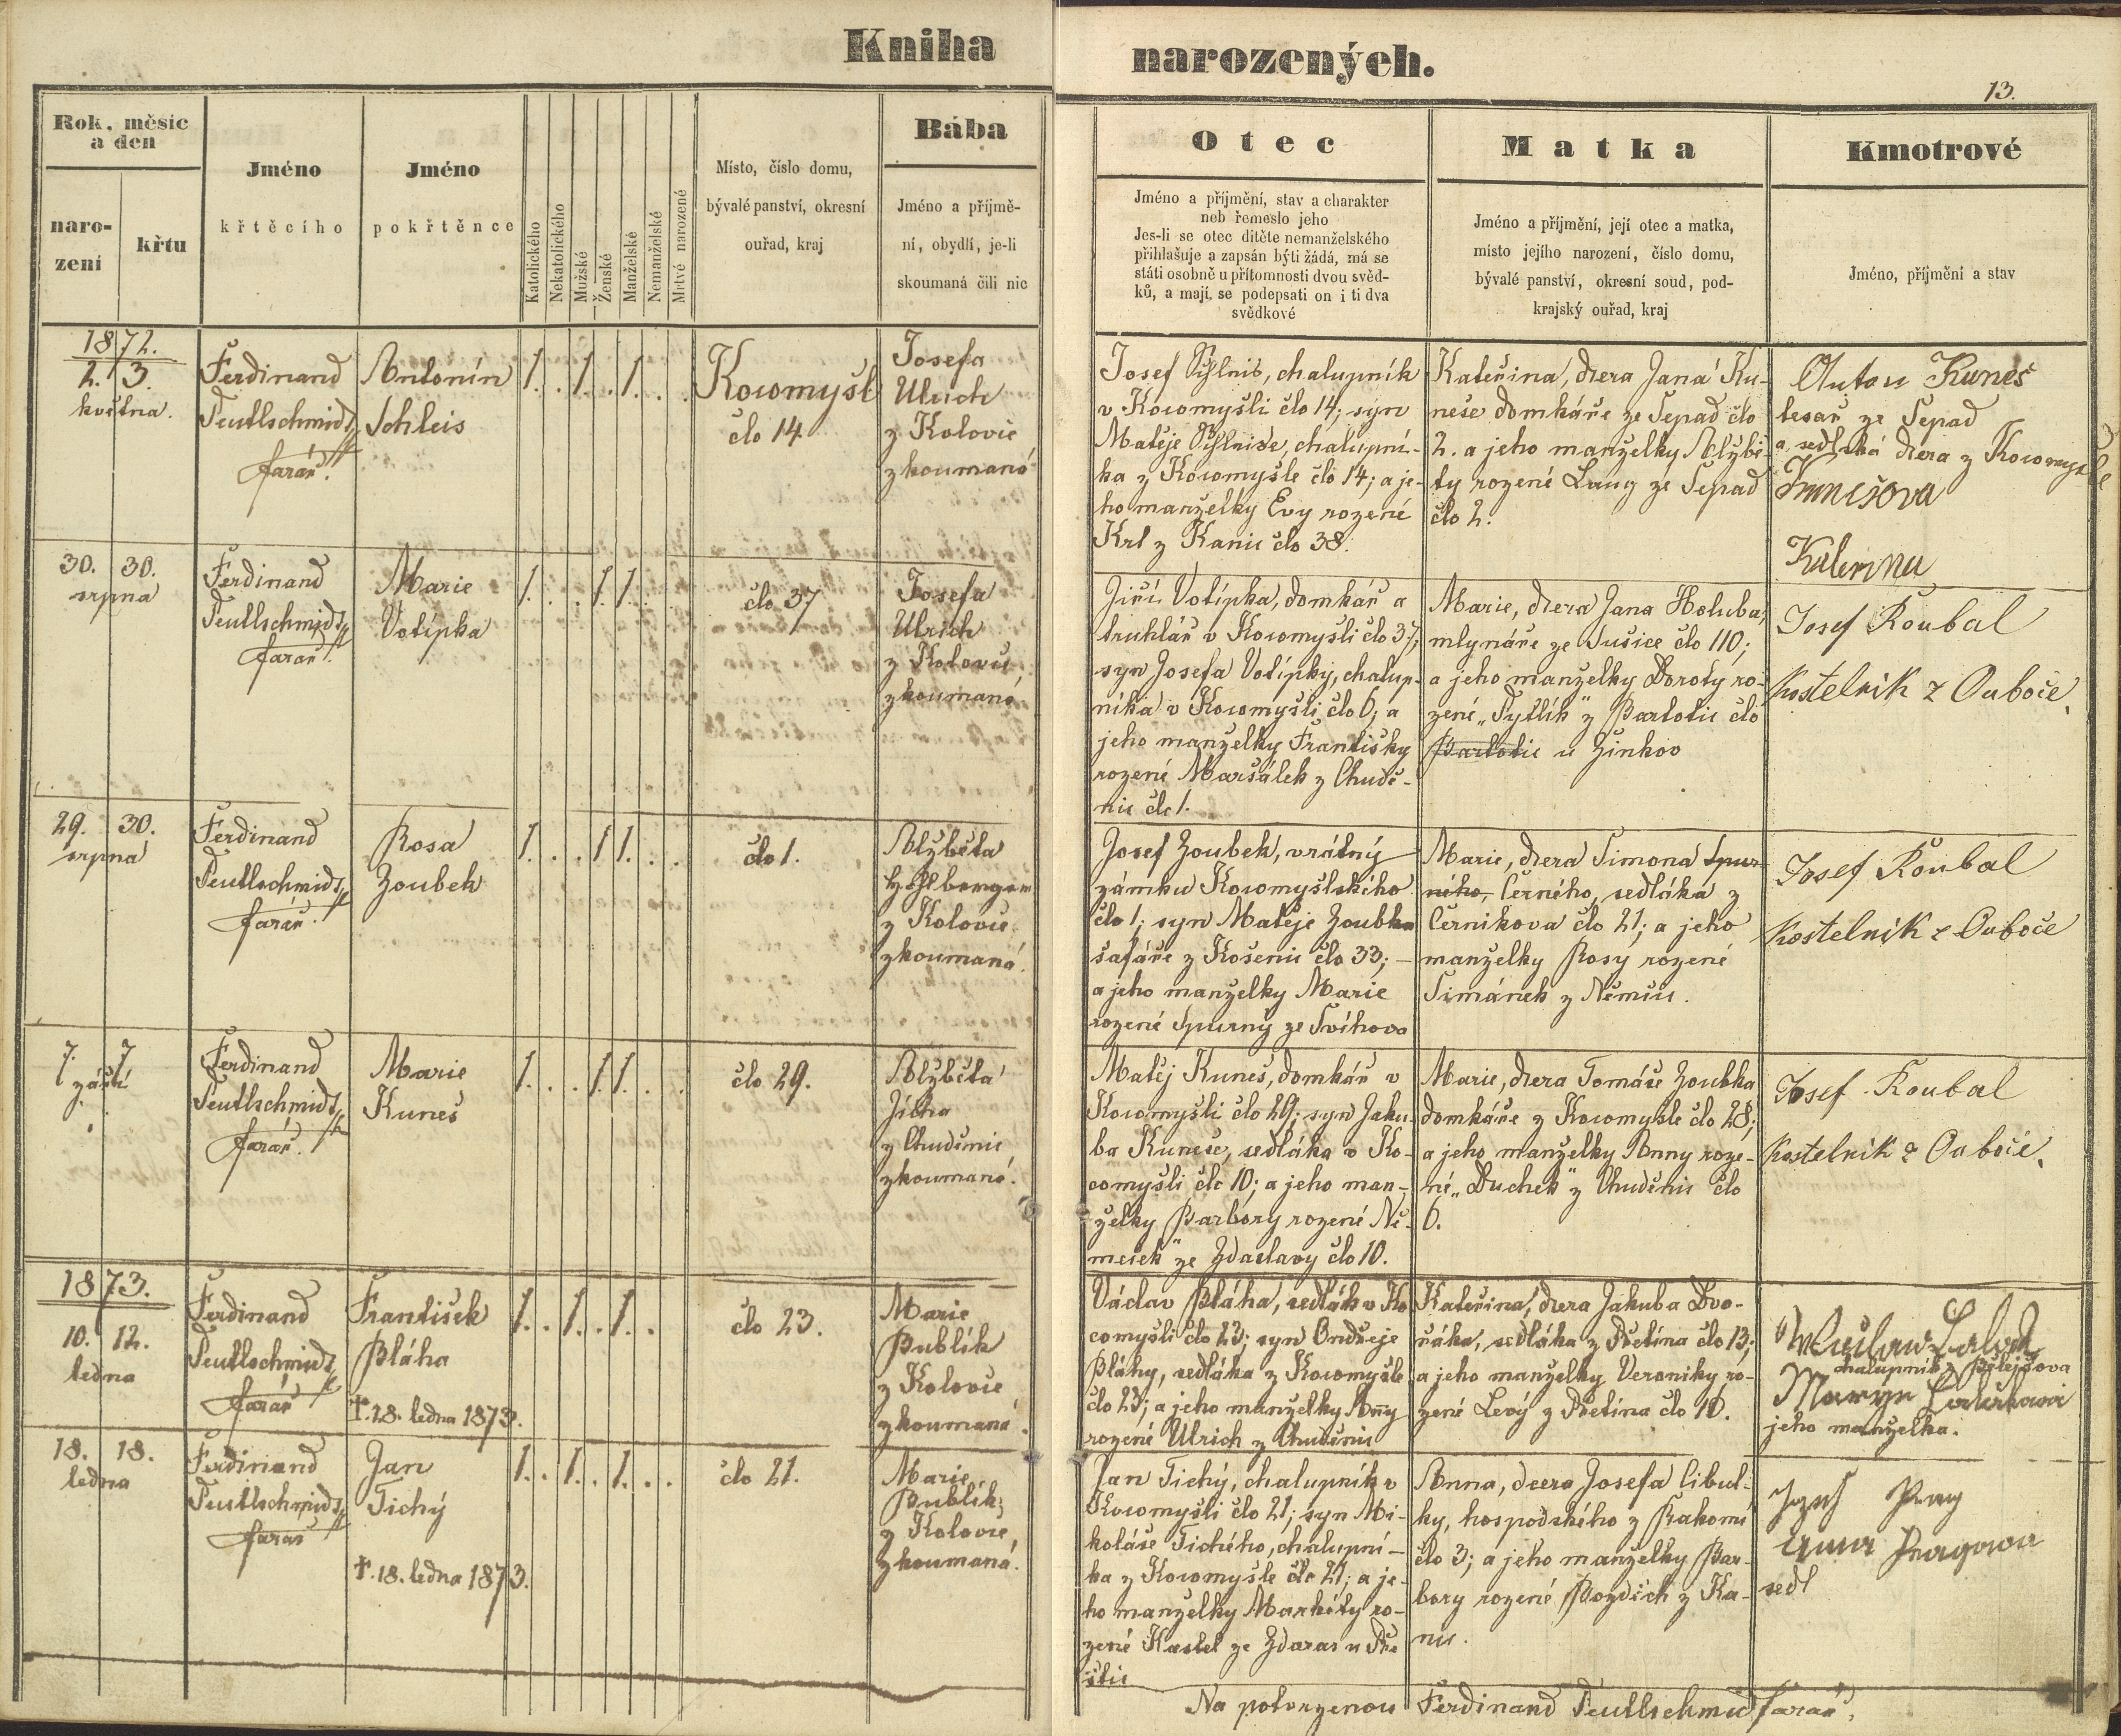 Kniha narozených.
13.
Rok, měsíc a den
naro-
zení
křtu
Jméno
křtěcího
Jméno
pokřtěnce
Katolického
Nekatolického
Mužské
Ženské
Manželské
Nemanželské
Mrtvé narozené
Místo, číslo domu,
bývalé panství, okresní
ouřad, kraj
Bába
Jméno a příjmě-
ní, obydlí, je-li
skoumaná čili nic
Otec
Jméno a příjmění, stav a charakter
neb řemeslo jeho
Jes-li se otec dítěte nemanželského
přihlašuje a zapsán býti žádá, má se
státi osobně u přítomnosti dvou svěd-
ků, a mají se podepsati on i ti dva
svědkové
Matka
Jméno a příjmění, její otec a matka,
místo jejího narození, číslo domu,
bývalé panství, okresní soud, pod-
krajský ouřad, kraj
Kmotrové
Jméno, příjmění a stav
1872.
2. 3.
května.
Ferdinand
Teutlschmidt,
farář.
Antonín
Schleis
1. . 1. . 1. . .
Kocomyšl
člo 14
Josefa
Ulrich
z Kolovič
zkoumaná
Josef chalupník
v Kocomyšli člo 14; syn
Matěje chalupní-
ka z Kocomyšle člo 14; a je-
ho manželky Evy rozené
Krl z Kanic člo 38.
Kateřina, dcera Jana Ku-
neše domkáře ze Sepad člo
2. a jeho manželky Alžbě-
ty rozené Lang ze Sepad
člo 2.
Anton Kuneš
tesař ze Sepad
a sedlská dcera z Kocomyšle
Kunešova
Katerina
30. 30.
srpna
Ferdinand
Teutlschmidt,
farář.
Marie
Votípka
1. . . 1. 1. . .
člo 37
Josefa
Ulrich
z Kolovič
zkoumaná
Jiří Votípka, domkář a
truhlář v Kocomyšli člo 37,
syn Josefa Votípky, chalup-
níka v Kocomyšli člo 6; a
jeho manželky Františky
rozené Maršálek z Chudě-
nic člo 1.
Marie, dcera Jana Holuba,
mlynáře ze Sušice člo 110;
a jeho manželky Doroty ro-
zené „Tytlík" z Partotic člo
Partotic u Žinkov
Josef Roubal
kostelník z Ouboče
29. 30.
srpna
Ferdinand
Teutlschmidt,
farář.
Rosa
Zoubek
1. . . 1 1. . .
člo 1.
Alžběta
z Kolovič
zkoumaná.
Josef Zoubek, vrátný
zámku Kocomyšlského
člo 1; syn Matěje Zoubka
šafáře z Košenic člo 33; –
a jeho manželky Marie
rozené Spurný ze Švihova
Marie, dcera Šimona Spur
ného, Černého, sedláka z
Černíkova člo 21; a jeho
manželky Rosy rozené
Šimánek z Němčic.
Josef Roubal
kostelník z Ouboče
7. 7
září
Ferdinand
Teutlschmidt,
farář.
Marie
Kuneš
1. . . 1. 1. . .
člo 29.
Alžběta
Jícha
z Chuděnic
zkoumaná.
Matěj Kuneš, domkář v
Kocomyšli člo 29; syn Jaku-
ba Kuneše, sedláka v Ko-
comyšli člo 10; a jeho man-
želky Barbory rozené Ně-
meček" ze Zdaslavy člo 10.
Marie, dcera Tomáše Zoubka
domkáře z Kocomyšle člo 28;
a jeho manželky Anny roze-
né „Duchek" z Chuděnic člo
6.
Josef Roubal
kostelník z Ouboče
1873.
10. 12.
ledna
Ferdinand
Teutlschmidt,
farář
František
Bláha
†. 28. ledna 1873.
1. . 1. . 1. .
člo 23.
Marie
Bublík
z Kolovče
zkoumaná.
Václav Bláha, sedlák v Ko
comyšli člo 23; syn Ondřeje
Bláhy, sedláka z Kocomyšle
člo 23; a jeho manželky Anny
rozené Ulrich z Chuděnic
Kateřina, dcera Jakuba Dvo-
řáka, sedláka z Úbětína člo 13;
a jeho manželky Veroniky ro-
zené Levý z člo 10.
chalupník z
jeho manželka.
18. 18.
ledna
Ferdinand
Teutlschmidt,
farář
Jan
Tichý
†. 18. ledna 1873.
1. . 1. . 1. . .
člo 21.
Marie
Bublík,
z Kolovče,
zkoumaná.
Jan Tichý, chalupník v
Kocomyšli člo 21; syn Mi-
koláše Tichého, chalupní-
ka z Kocomyšle člo 21; a je-
ho manželky Markéty ro-
zené ze Zdaras u Pře
štic
Anna, dcera Josefa Cibul-
ky, hospodského z
člo 3; a jeho manželky Bar-
bory rozené z Ka-
nic.
sedl
Na potvrzenou Ferdinand Teutlschmid farář.